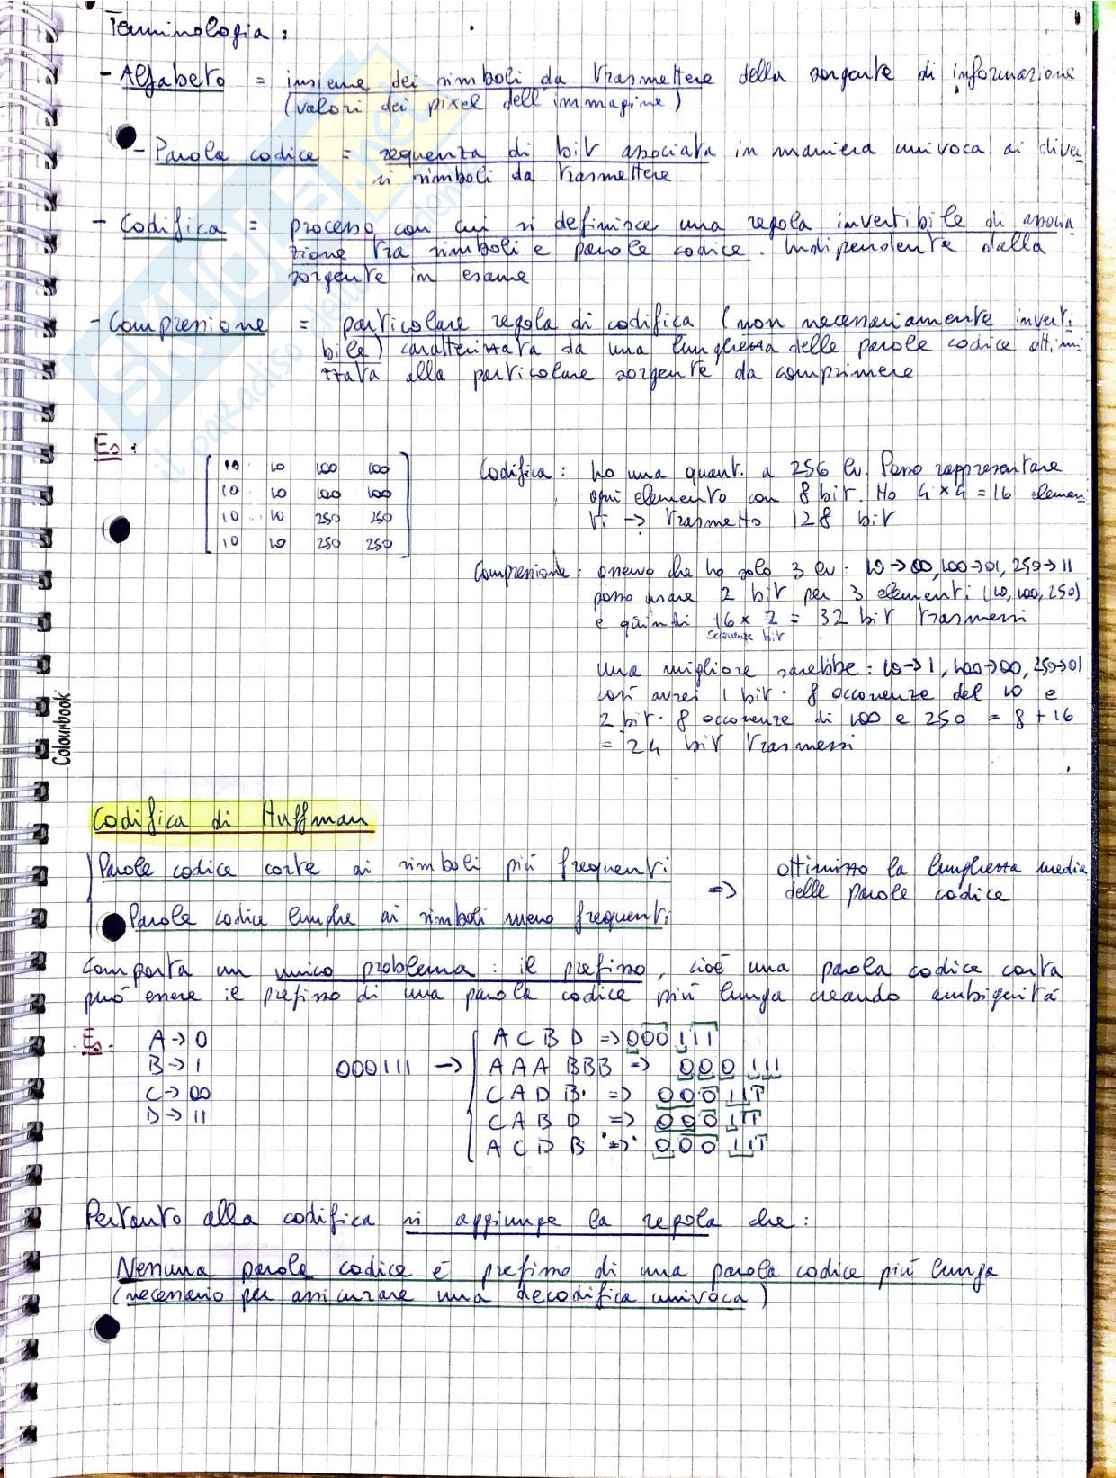 Terminologia:
- Alfabeto = insieme dei simboli da trasmettere della sorgente di informazione
(valori dei pixel dell'immagine)
- Parola codice = sequenza di bit associata in maniera univoca ai diver
si simboli da trasmettere
- Codifica = processo con cui si definisce una regola invertibile di associa
zione tra simboli e parole codice. Indipendente dalla
sorgente in esame
- Compressione = particolare regola di codifica (non necessariamente inverti
bile) caratterizzata da una lunghezza delle parole codice ottimi
zzata alla particolare sorgente da comprimere
Es:
10 10 100 100
10 10 100 100
10 10 250 250
10 10 250 250
Codifica: ho una quant. a 256 liv. Posso rappresentare
ogni elemento con 8 bit. Ho 4 x 4 = 16 elemen
ti -> trasmetto 128 bit
Compressione: osservo che ho solo 3 liv: 10->00, 100->01, 250->11
posso usare 2 bit per 3 elementi (10, 100, 250)
e quindi 16 x 2 = 32 bit trasmessi
bit
una migliore sarebbe: 10->1, 100->00, 250->01
così avrei 1 bit · 8 occorrenze del 10 e
2 bit · 8 occorrenze di 100 e 250 = 8 + 16
= 24 bit trasmessi
Colourbook
Codifica di Huffman
Parole codice corte ai simboli più frequenti
Parole codice lunghe ai simboli meno frequenti
=> ottimizzo la lunghezza media
delle parole codice
Comporta un unico problema: il prefisso, cioè una parola codice corta
può essere il prefisso di una parola codice più lunga creando ambiguità
Es.
A->0
B->1
C->00
D->11
000111 ->
A C B D => 000111
A A A B B B => 000111
C A D B => 000111
C A B D => 000111
A C D B => 000111
Pertanto alla codifica si aggiunge la regola che:
Nessuna parola codice è prefisso di una parola codice più lunga
(necessario per assicurare una decodifica univoca)